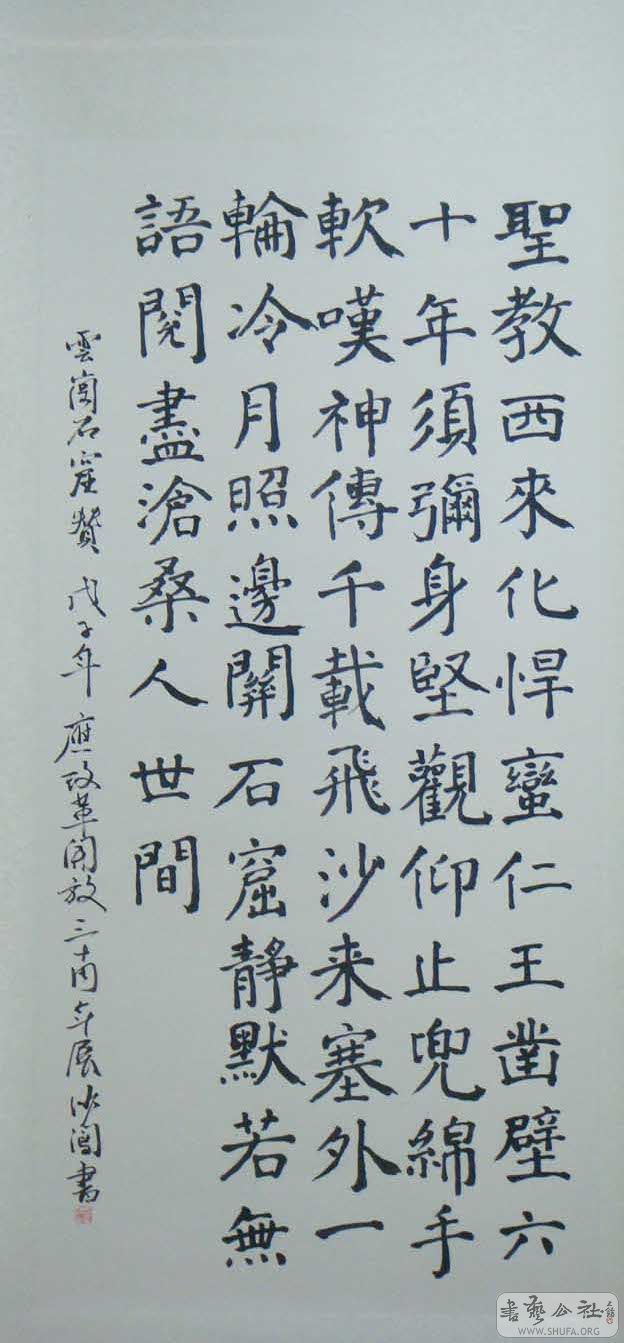 聖教西來化悍蠻仁王凿壁六
十年須彌身堅觀仰止兜綿手
軟嘆神傳千載飛沙来塞外一
輪冷月照邊關石窟靜默若無
語閱盡滄桑人世間
雲崗石窟贊 戊子年 應改革開放三十周年展 書
書藝公社
WWW.SHUFA.ORG